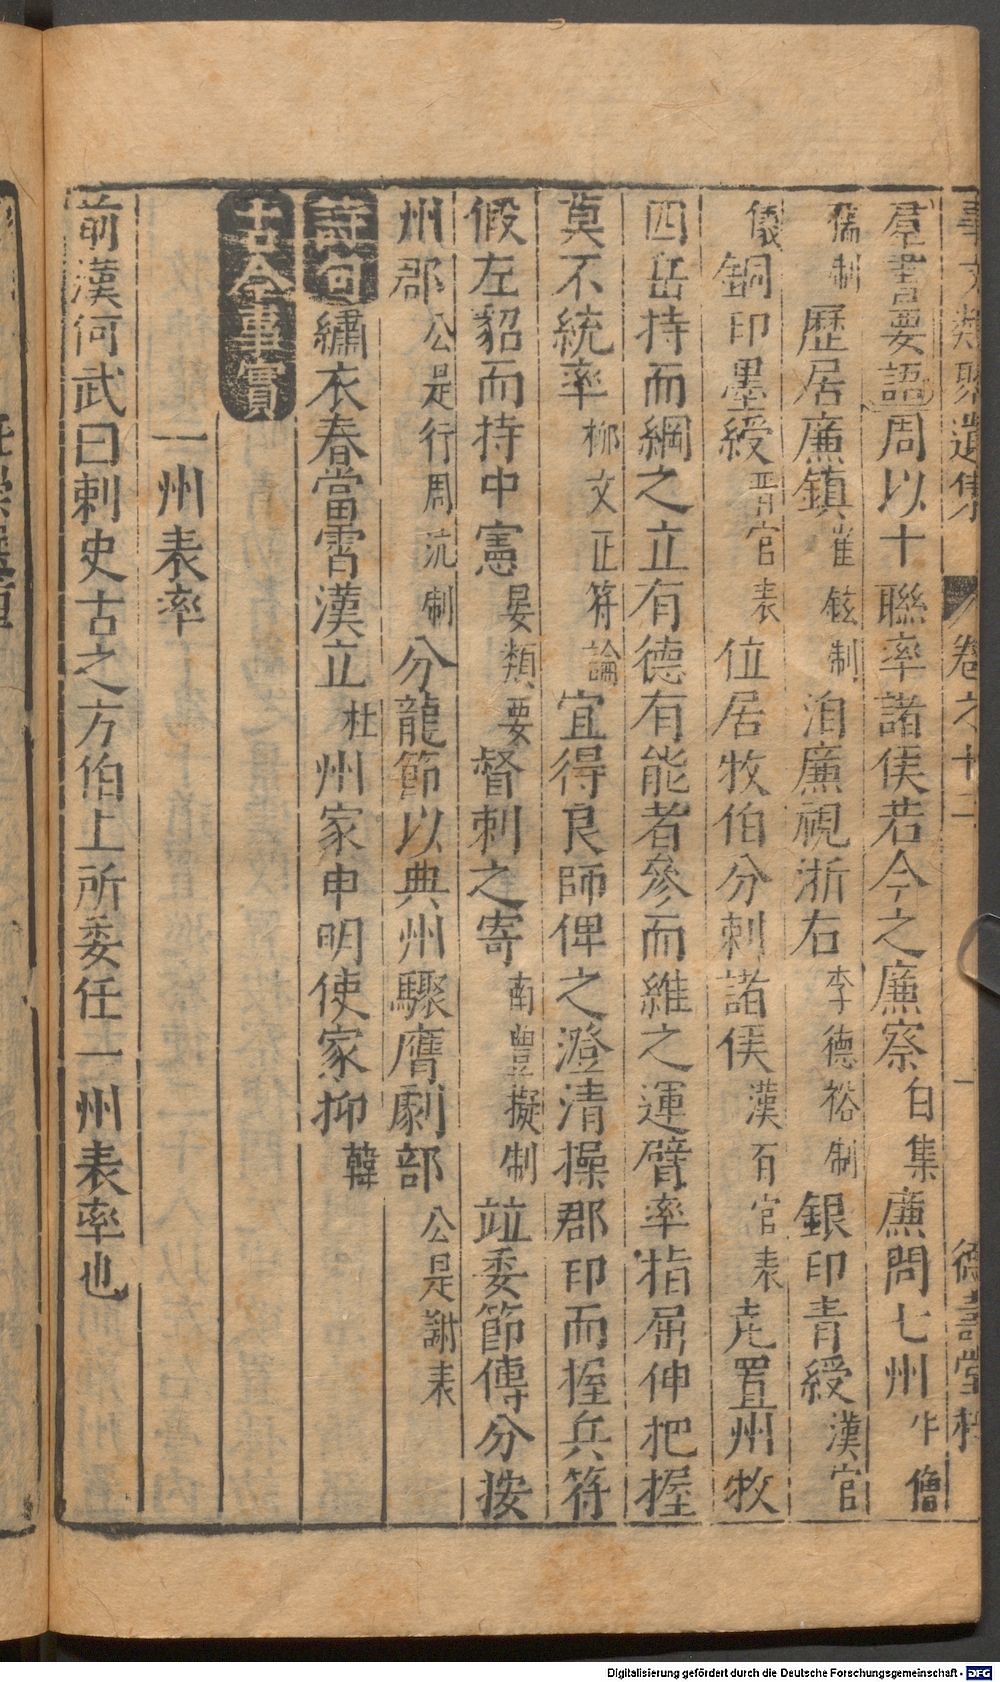 事文類聚遺集 卷之十二 一 德壽堂梓
羣書要語周以十聯率諸侯若今之廉察白集廉問七州牛僧
孺制歷居廉鎮崔鉉制洎廉視浙右李德裕制銀印青綬漢官
儀銅印墨綬晋官表位居牧伯分刺諸侯漢百官表尭置州牧
四岳持而綱之立有德有能者參而維之運臂率指屈伸把握
莫不統率柳文正符論宜得良師俾之澄清操郡印而握兵符
假左貂而持中憲晏類要督刺之寄南豐擬制竝委節傳分按
州郡公是行周沆制分龍節以典州驟膺劇部公是謝表
詩句繡衣春當霄漢立杜州家申明使家抑韓
古今事實
一州表率
前漢何武曰刺史古之方伯上所委任一州表率也
Digitalisierung gefördert durch die Deutsche Forschungsgemeinschaft - DFG